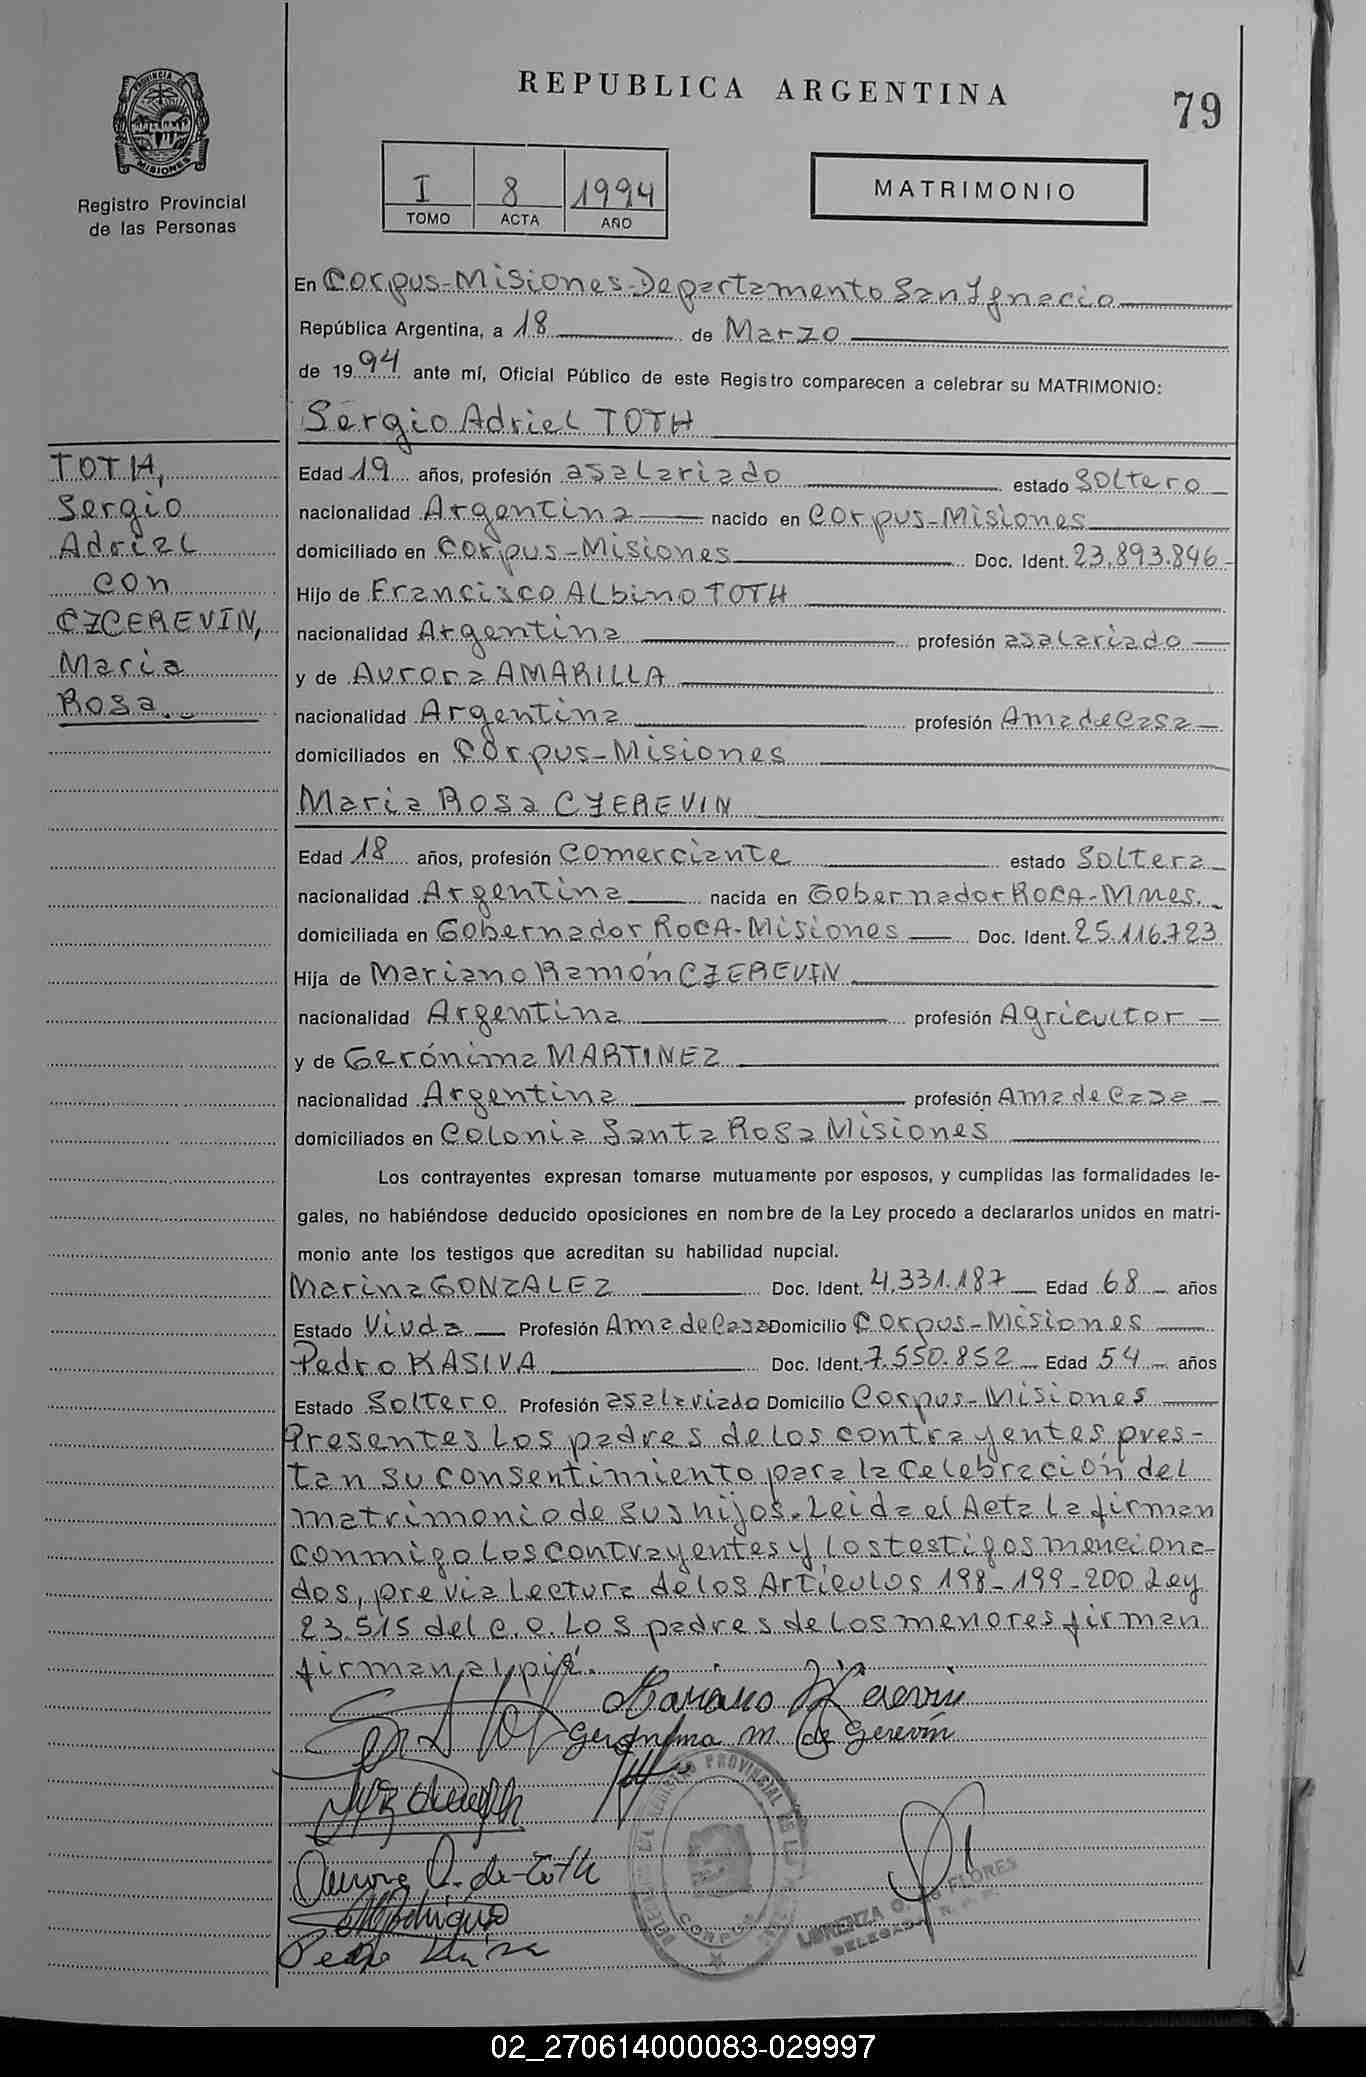 REPUBLICA ARGENTINA
79
PROVINCIA DE
MISIONES
Registro Provincial
de las Personas
I 8 1994
TOMO ACTA AÑO
MATRIMONIO
En Corpus-Misiones-Departamento San Ignacio
República Argentina, a 18 de Marzo
de 1994 ante mí, Oficial Público de este Registro comparecen a celebrar su MATRIMONIO:
Sergio Adriel TOTH
TOTH,
Sergio
Adriel
con
CZCEREVIN,
Maria
Rosa.
Edad 19 años, profesión asalariado estado Soltero
nacionalidad Argentina nacido en Corpus-Misiones
domiciliado en Corpus-Misiones Doc. Ident. 23.893.846
Hijo de Francisco Albino TOTH
nacionalidad Argentina profesión asalariado
y de Aurora AMARILLA
nacionalidad Argentina profesión Ama de Casa
domiciliados en Corpus-Misiones
Maria Rosa CZEREVIN
Edad 18 años, profesión comerciante estado Soltera
nacionalidad Argentina nacida en Gobernador ROCA-Mnes.
domiciliada en Gobernador ROCA-Misiones Doc. Ident. 25.116.723
Hija de Mariano Ramón CZEREVIN
nacionalidad Argentina profesión Agricultor
y de Gerónima MARTINEZ
nacionalidad Argentina profesión Ama de Casa
domiciliados en Colonia Santa Rosa Misiones
Los contrayentes expresan tomarse mutuamente por esposos, y cumplidas las formalidades le-
gales, no habiéndose deducido oposiciones en nombre de la Ley procedo a declararlos unidos en matri-
monio ante los testigos que acreditan su habilidad nupcial.
Marina GONZALEZ Doc. Ident. 4.331.187 Edad 68 años
Estado Viuda Profesión Ama de Casa Domicilio Corpus-Misiones
Pedro KASIVA Doc. Ident. 7.550.852 Edad 54 años
Estado Soltero Profesión asalariado Domicilio Corpus-Misiones
Presentes los padres de los contrayentes pres-
tan su consentimiento para la celebración del
matrimonio de sus hijos. Leida el Acta la firman
conmigo los contrayentes y los testigos menciona-
dos, previa lectura de los Artículos 198-199-200 Ley
23.515 del C.C. Los padres de los menores firman
firman al pié.
Mariano
Geronima M. de Gerevin
Aurora A. de Toth
REGISTRO PROVINCIAL DE LAS
CORPUS
LORENZA O. DE FLORES
DELEGADA
02_270614000083-029997